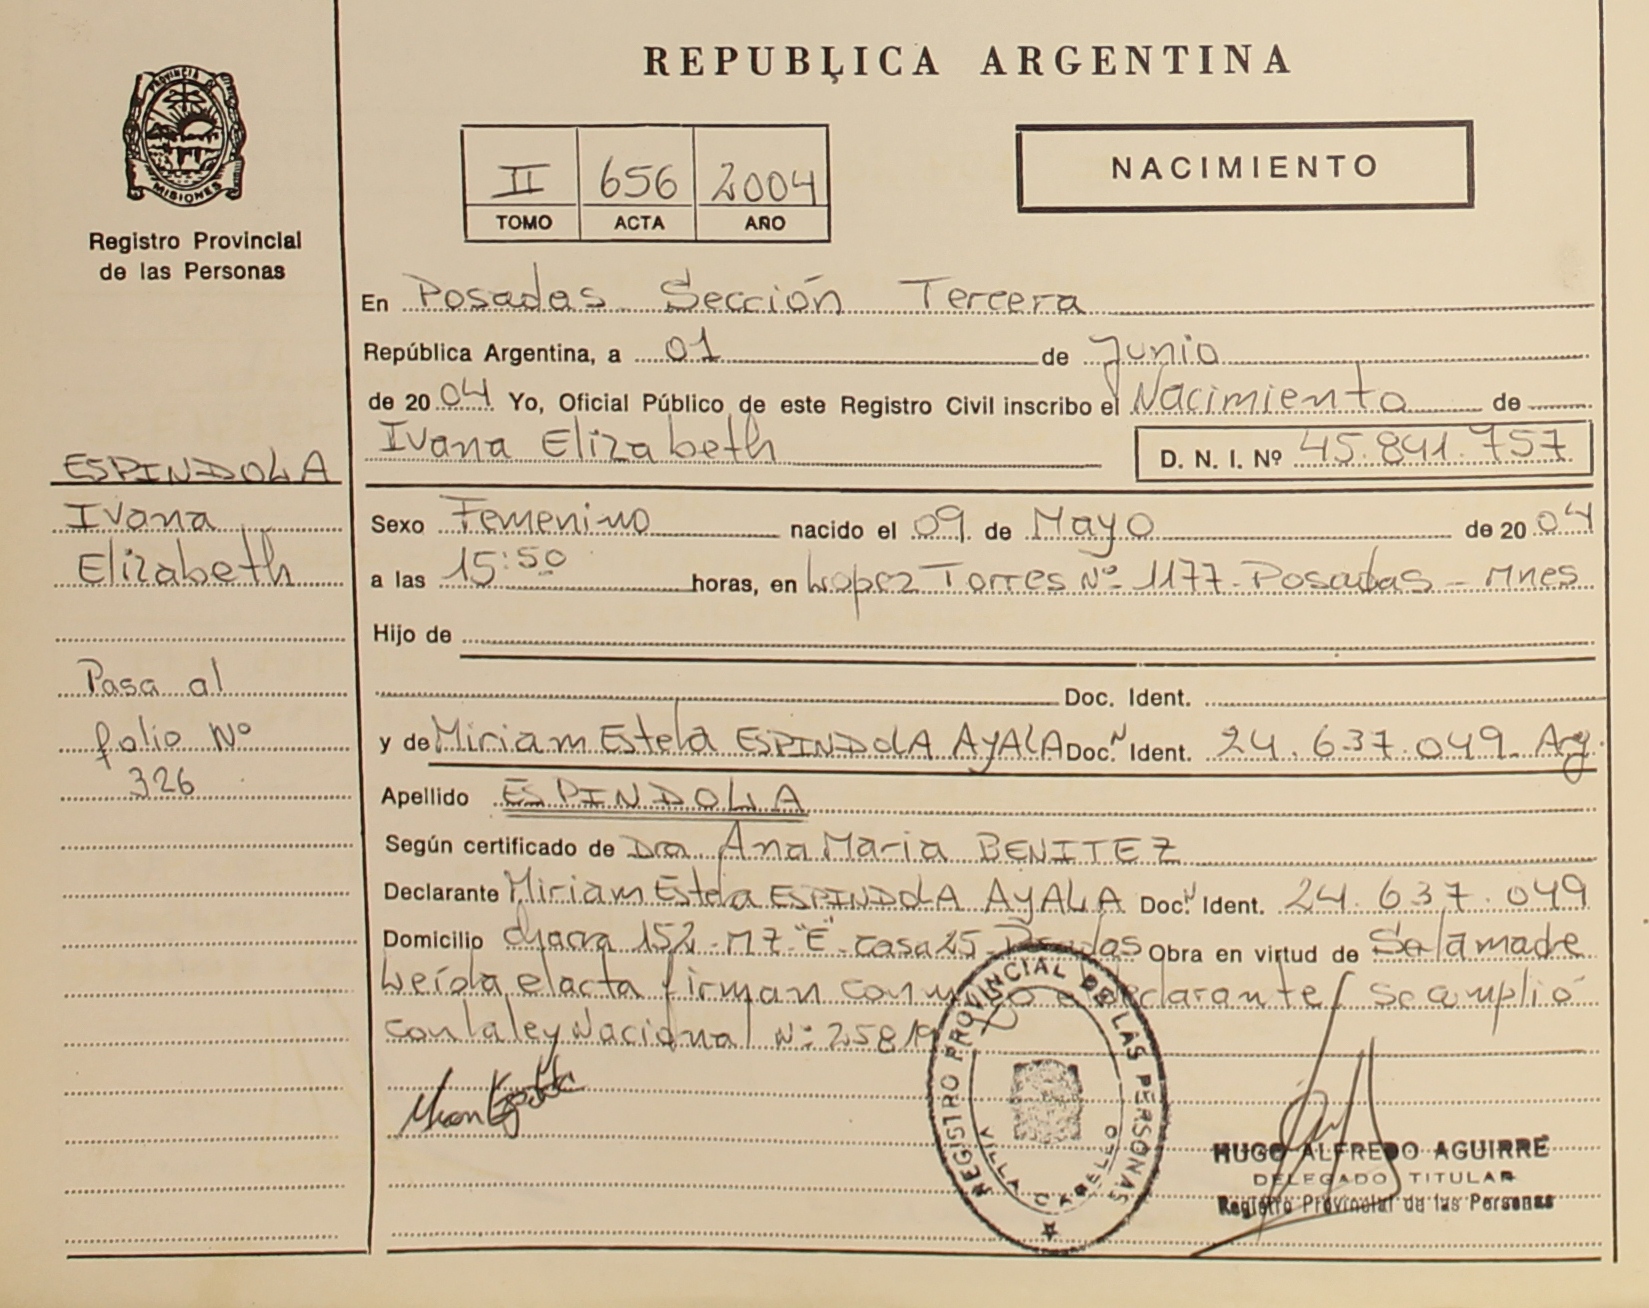 REPUBLICA ARGENTINA
PROVINCIA
MISIONES
Registro Provincial
de las Personas
II 656 2004
TOMO ACTA AÑO
NACIMIENTO
En Posadas Sección Tercera
República Argentina, a 01 de Junio
de 2004 Yo, Oficial Público de este Registro Civil inscribo el Nacimiento de
Ivana Elizabeth D. N. I. Nº 45.841.757
ESPINDOLA
Ivana
Elizabeth
Pasa al
folio Nº
326
Sexo Femenino nacido el 09 de Mayo de 2004
a las 15:50 horas, en Lopez Torres Nº 1177-Posadas - Mnes
Hijo de
Doc. Ident.
y de Miriam Estela ESPINDOLA AYALA Doc. N Ident. 24.637.049 Arg.
Apellido ESPINDOLA
Según certificado de Dra. Ana Maria BENITEZ
Declarante Miriam Estela ESPINDOLA AYALA Doc. N Ident. 24.637.049
Domicilio chacra 152-M7-"E"-casa 25-Posadas Obra en virtud de Ser la madre
Leída el acta firman conmigo el declarante/ se amplió
con la ley Nacional Nº 25819
REGISTRO PROVINCIAL DE LAS PERSONAS
VILLA CABELLO
HUGO ALFREDO AGUIRRE
DELEGADO TITULAR
Registro Provincial de las Personas